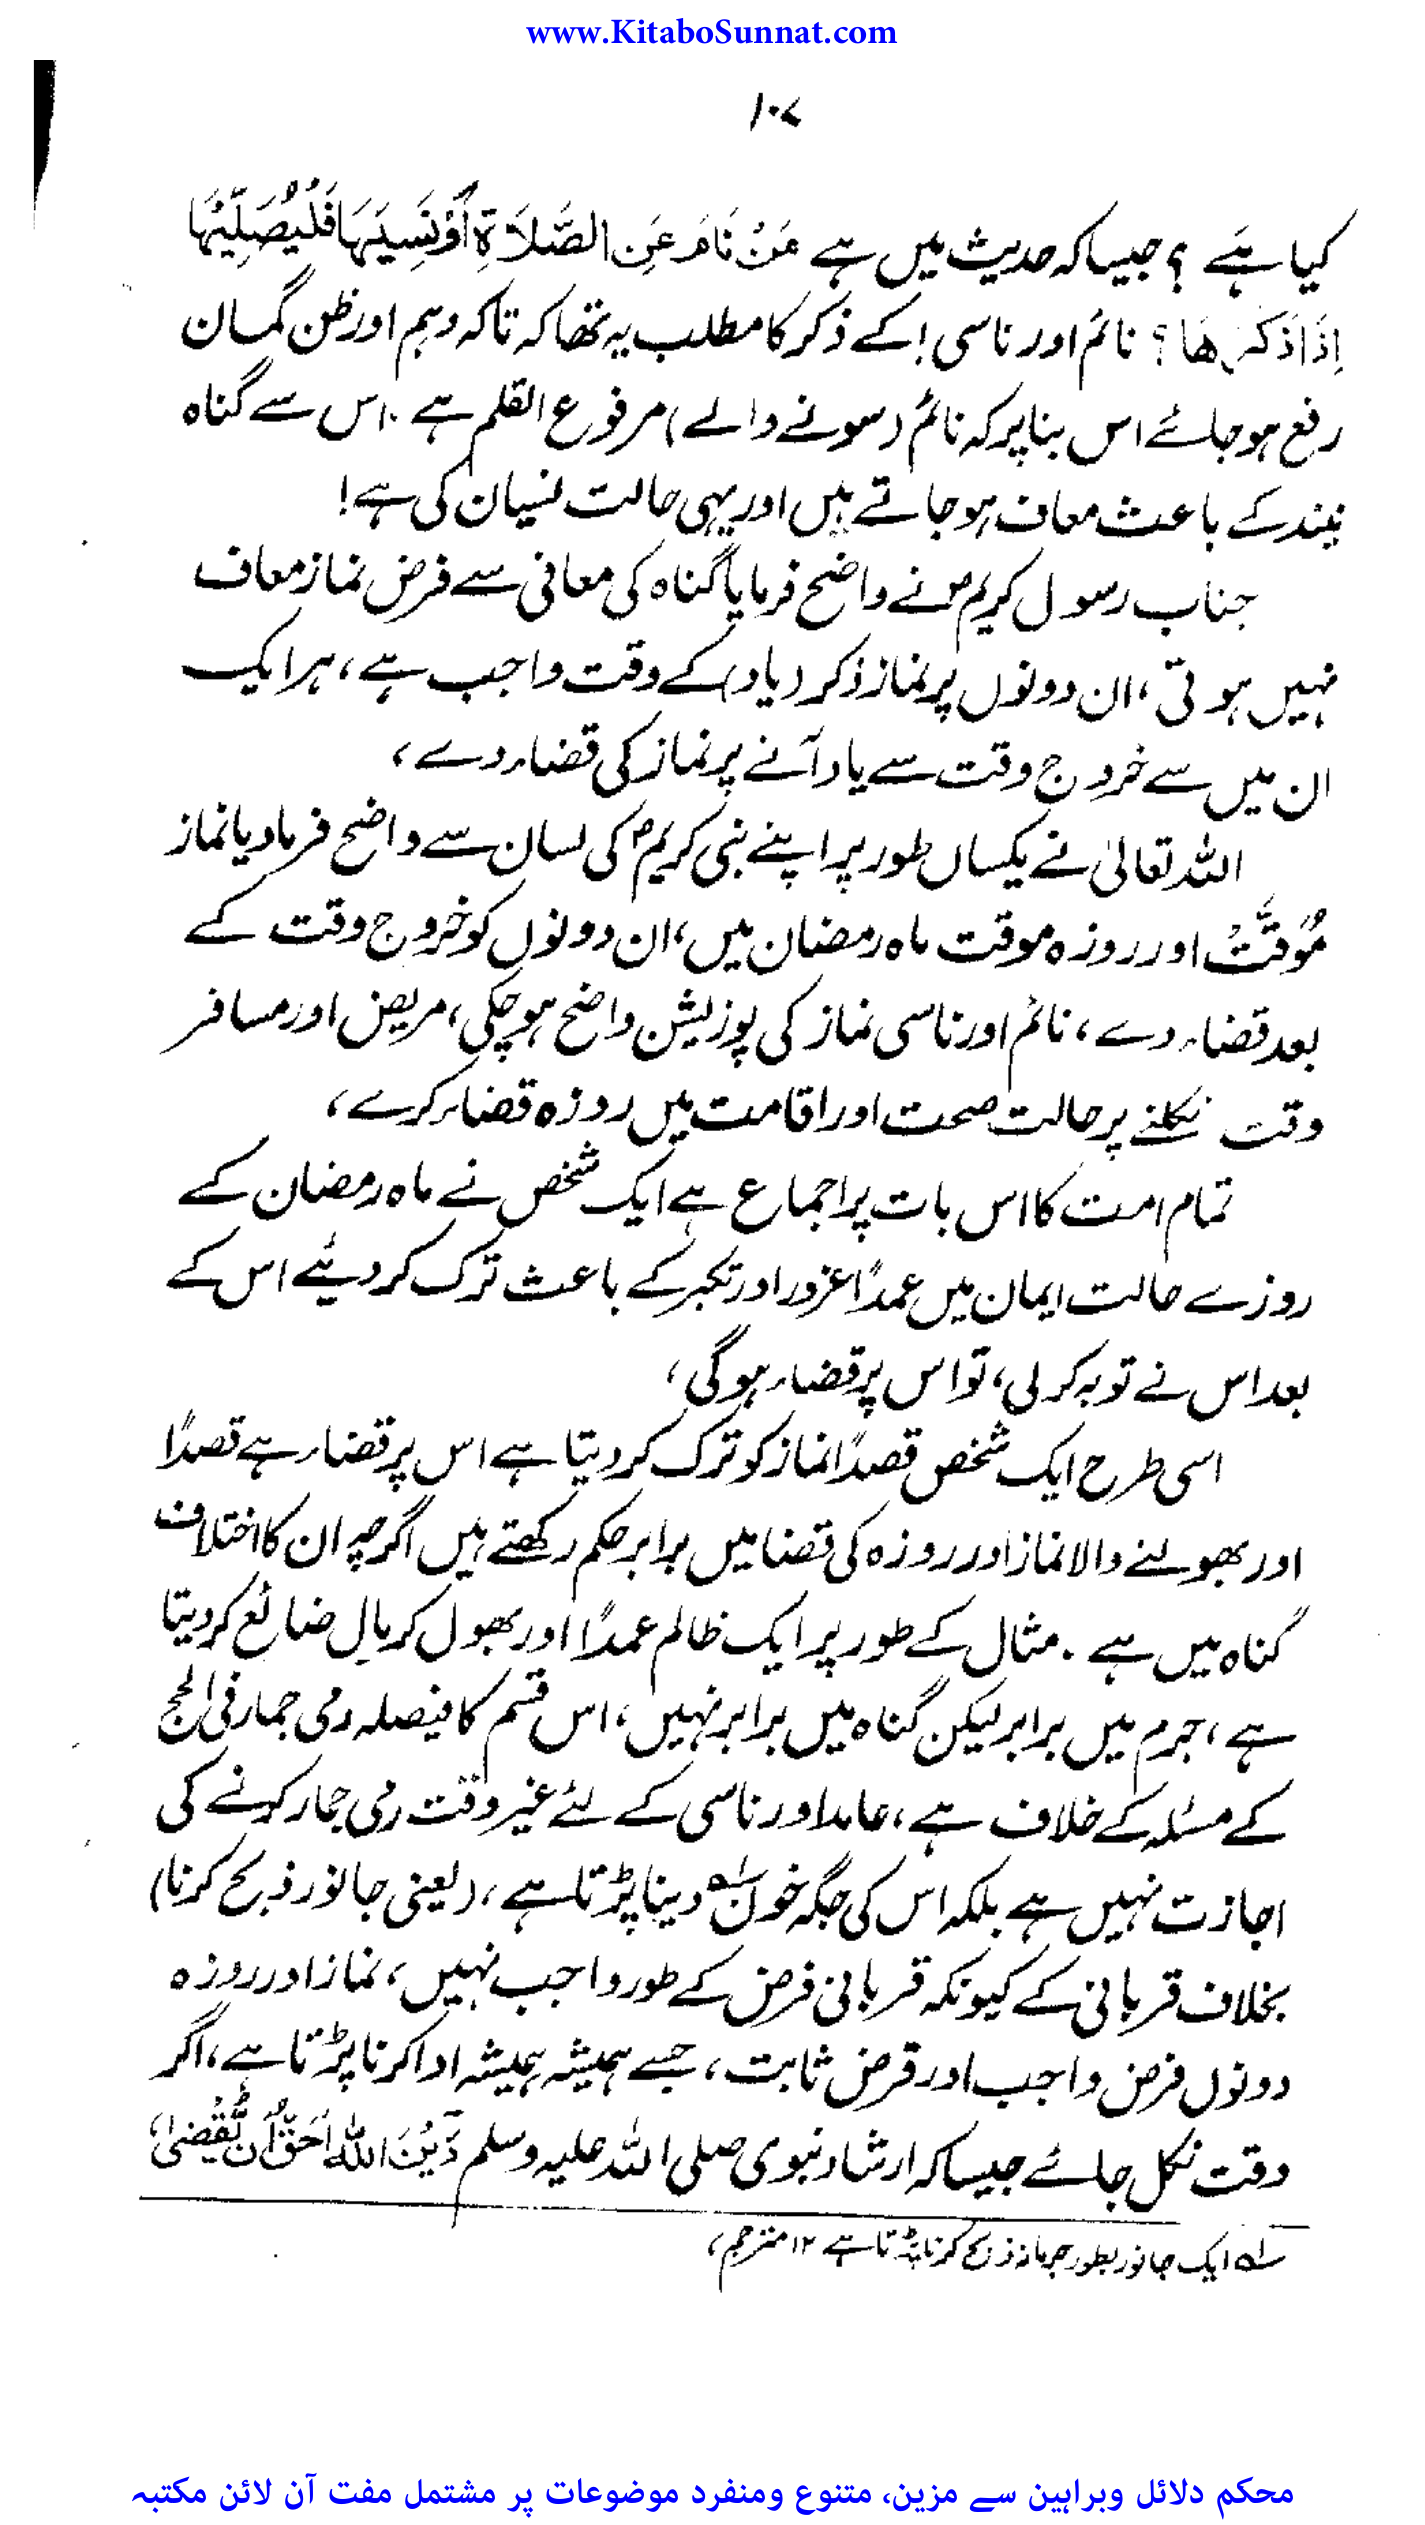 www.KitaboSunnat.com
۱۰۷
کیا ہے ؟ جیسا کہ حدیث میں ہے مَنْ نَامَ عَنِ الصَّلَاۃِ اَوْ نَسِیَہَا فَلْیُصَلِّیْہَا
اِذَا ذَکَرَھَا؟ نائم اور ناسی! کے ذکر کا مطلب یہ تھا کہ تاکہ وہم اور ظن گمان
رفع ہو جائے اس بنا پر کہ نائم (سونے والے) مرفوع القلم ہے ۔ اس سے گناہ
نیند کے باعث معاف ہو جاتے ہیں اور یہی حالت نسیان کی ہے!
جناب رسول کریمؐ نے واضح فرمایا گناہ کی معافی سے فرض نماز معاف
نہیں ہوتی، ان دونوں پر نماز ذکر (یاد) کے وقت واجب ہے، ہر ایک
ان میں سے خروج وقت سے یاد آنے پر نماز کی قضاء دے،
اللہ تعالیٰ نے یکساں طور پر اپنے نبی کریمؐ کی لسان سے واضح فرما دیا نماز
مُؤَقَّتْ اور روزہ موقت ماہ رمضان میں، ان دونوں کو خروج وقت کے
بعد قضاء دے، نائم اور ناسی نماز کی پوزیشن واضح ہو چکی، مریض اور مسافر
وقت نکلنے پر حالت صحت اور اقامت میں روزہ قضاء کرے،
تمام امت کا اس بات پر اجماع ہے ایک شخص نے ماہ رمضان کے
روزے حالت ایمان میں عمدًا غرور اور تکبر کے باعث ترک کر دیئے اس کے
بعد اس نے توبہ کر لی، تو اس پر قضاء ہو گی،
اسی طرح ایک شخص قصدًا نماز کو ترک کر دیتا ہے اس پر قضاء ہے قصدًا
اور بھولنے والا نماز اور روزہ کی قضا میں برابر حکم رکھتے ہیں اگرچہ ان کا اختلاف
گناہ میں ہے ۔ مثال کے طور پر ایک ظالم عمدًا اور بھول کر مال ضائع کر دیتا
ہے، جرم میں برابر لیکن گناہ میں برابر نہیں، اس قسم کا فیصلہ رمی جمار فی الحج
کے مسئلہ کے خلاف ہے، عامد اور ناسی کے لئے غیر وقت رمی جمار کرنے کی
اجازت نہیں ہے بلکہ اس کی جگہ خون لہ دینا پڑتا ہے، (یعنی جانور ذبح کرنا)
بخلاف قربانی کے کیونکہ قربانی فرض کے طور واجب نہیں، نماز اور روزہ
دونوں فرض واجب اور قرض ثابت، جسے ہمیشہ ہمیشہ ادا کرنا پڑتا ہے، اگر
وقت نکل جائے جیسا کہ ارشاد نبوی صلی اللہ علیہ وسلم دَیْنَ اللہِ اَحَقُّ اَنْ تُقْضیٰ،
لہ ایک جانور بطور جرمانہ ذبح کرنا پڑتا ہے ۱۲ مترجم،
محکم دلائل وبراہین سے مزین، متنوع ومنفرد موضوعات پر مشتمل مفت آن لائن مکتبہ